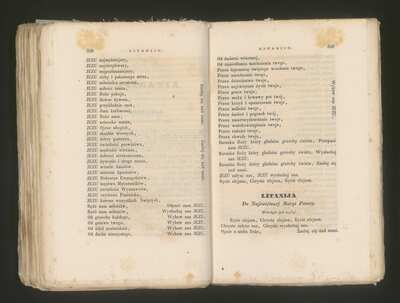 LITANIJE.
JEZU najmężniejszy,
JEZU najcierpliwszy,
JEZU najposłuszniejszy,
JEZU cichy i pokornego serca,
JEZU miłośniku czystości,
JEZU miłości nasza,
JEZU Boże pokoju,
JEZU dawco żywota,
JEZU przykładzie cnót,
JEZU Boże nasz,
JEZU ucieczko nasza,
JEZU Ojcze ubogich,
JEZU skarbie wiernych,
JEZU dobry pasterzu,
JEZU światłości prawdziwa,
JEZU mądrości wieczna,
JEZU dobroci nieskończona,
JEZU wesele Aniołów,
JEZU mistrzu Apostołów,
JEZU męztwo Męczenników,
JEZU światłości Wyznawców,
JEZU czystości Panieńska,
JEZU korono wszystkich Świętych,
Bądź nam miłościw, Odpuść nam JEZU.
Bądź nam miłościw, Wysłuchaj nas JEZU.
Od grzechu każdego, Wybaw nas JEZU.
Od gniewu twego, Wybaw nas JEZU.
Od sideł szatańskich, Wybaw nas JEZU.
Od ducha nieczystego, Wybaw nas JEZU.
LITANIJE.
Od śmierci wiecznej,
Od zaniedbania natchnienia twego,
Przez tajemnicę świętego wcielenia twego,
Przez narodzenie twoje,
Przez dzieciństwo twoje,
Przez najświętsze życie twoje,
Przez prace twoje,
Przez mękę i krwawy pot twój,
Przez krzyż i opuszczenie twoje,
Przez mdłości twoje,
Przez śmierć i pogrzeb twój,
Przez zmartwychwstanie twoje,
Przez wniebowstąpienie twoje,
Przez radości twoje,
Przez chwałę twoję,
Wybaw nas JEZU.
Baranku Boży który gładzisz grzechy świata, Przepuść
nam JEZU.
Baranku Boży który gładzisz grzechy świata, Wysłuchaj
nas JEZU.
Baranku Boży który gładzisz grzechy świata, Zmiłuj się
nad nami.
JEZU usłysz nas, JEZU wysłuchaj nas.
Kyrie elejson, Chryste elejson, Kyrie elejson.
LITANIJA
Do Najświętszej Maryi Panny.
Kyrie elejson, Chryste elejson, Kyrie elejson.
Chryste usłysz nas, Chryste wysłuchaj nas.
Ojcze z nieba Boże, Zmiłuj się nad nami.